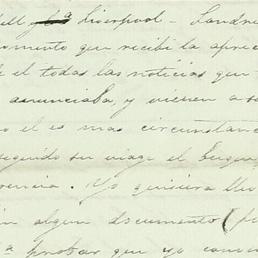 ell Liverpool - Londre
omento que recibí la apreci
e el todas las noticias que
anunciaba, y vienen a s
o el es mas circunstanc
seguido su viage el buque
rencia. Yo quisiera
in algun documento (p
a probar que yo